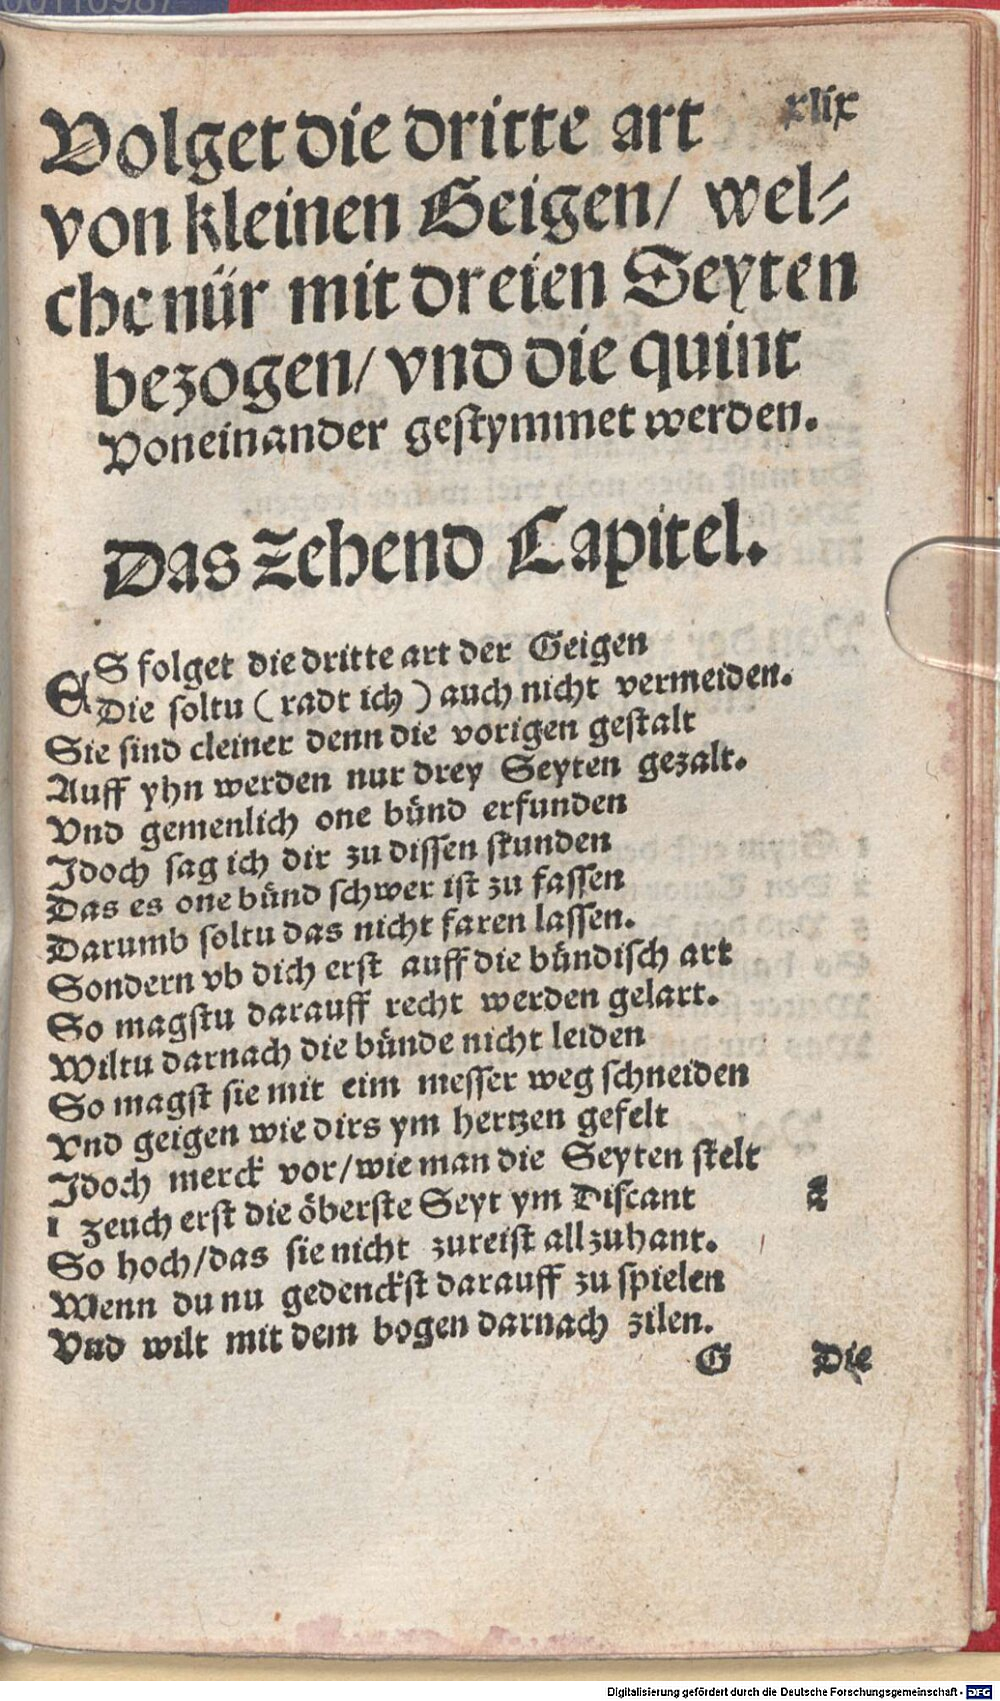 xlix
Volget die dritte art
von kleinen Geigen/ wel⸗
che nür mit dreien Seyten
bezogen/ vnd die quint
Voneinander gestymmet werden.
Das Zehend Capitel.
ES folget die dritte art der Geigen
Die soltu ( radt ich ) auch nicht vermeiden.
Sie sind cleiner denn die vorigen gestalt
Auff yhn werden nur drey Seyten gezalt.
Vnd gemenlich one bünd erfunden
Jdoch sag ich dir zu dissen stunden
Das es one bünd schwer ist zu fassen
Darumb soltu das nicht faren lassen.
Sondern vb dich erst auff die bündisch art
So magstu darauff recht werden gelart.
Wiltu darnach die bünde nicht leiden
So magst sie mit eim messer weg schneiden
Vnd geigen wie dirs ym hertzen gefelt
Jdoch merck vor/ wie man die Seyten stelt
1 Zeuch erst die öberste Seyt ym Discant
So hoch/ das sie nicht zureist allzuhant.
Wenn du nu gedenckst darauff zu spielen
Vnd wilt mit dem bogen darnach zilen.
G Die
Digitalisierung gefördert durch die Deutsche Forschungsgemeinschaft - DFG